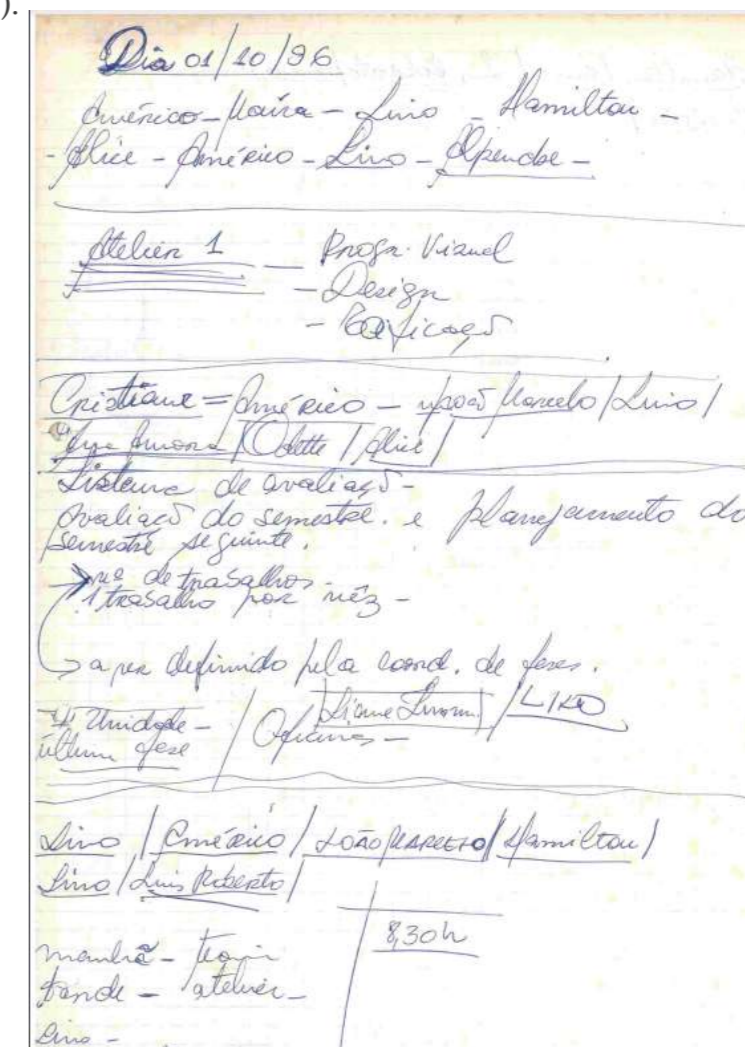 ).
Dia 01/10/96
Américo - Maíra - Lino - Hamilton -
- Alice - Américo - Lino - Alpendre -
Atelier 1 - Progr. Visual
- Design
- Edificaçõ
Cristiane = Américo - João Marcelo / Lino /
Ana Aurora / Odette / Alice /
Sistema de avaliaçõ -
Avaliaçõ do semestre. e planejamento do
semestre seguinte.
nº de trabalhos -
1 trabalho por mêz -
a ser definido pela coord. de fases.
4ª Unidade - / Oficinas - / LIRO
última fase
Lino / Américo / JOÃO MARCELO / Hamilton /
Lino / Luis Roberto /
8,30h
manhã - teoria
tarde - atelier -
Lino -